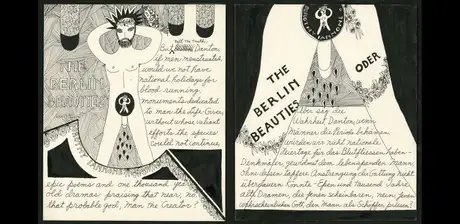 THE
BERLIN
BEAUTIES
tell the truth.
But Danton,
if men menstruated,
would we not have
national holidays for
blood running
monuments dedicated
to man the Life-Giver,
without whose valiant
efforts the species
could not continue,
epic poems and one thousand year
old dramas praising that near, no
that probable god, Man the Creator?
THE
BERLIN
BEAUTIES
ODER
Aber sag die
Wahrheit Danton, wenn
Männer die Periode bekämen
würden wir nicht nationale
Feiertage für das Blutfliessen haben-
Denkmäler, gewidmet dem lebenspenden Mann
ohne dessen tapfere Anstrengung die Gattung nicht
überdauern könnte - Epen und Tausend Jahre
alte Dramen, die jenen scheinbaren, nein jenen
wahrscheinlichen Gott, den Mann als Schöpfer preisen?